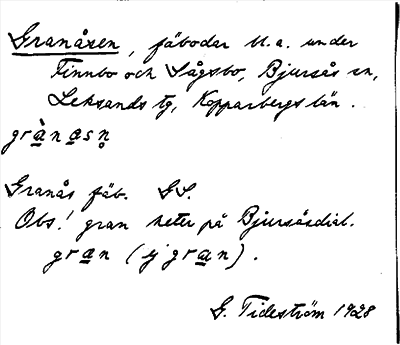 Granåsen, fäbodar bl.a. under
Finnbo och Sågsbo, Bjursås sn,
Leksands tg, Kopparbergs län.
grànasn̥
Granås fäb. GS.
Obs! gran heter på Bjursåsdial.
gran (ej gran).
G. Tideström 1928